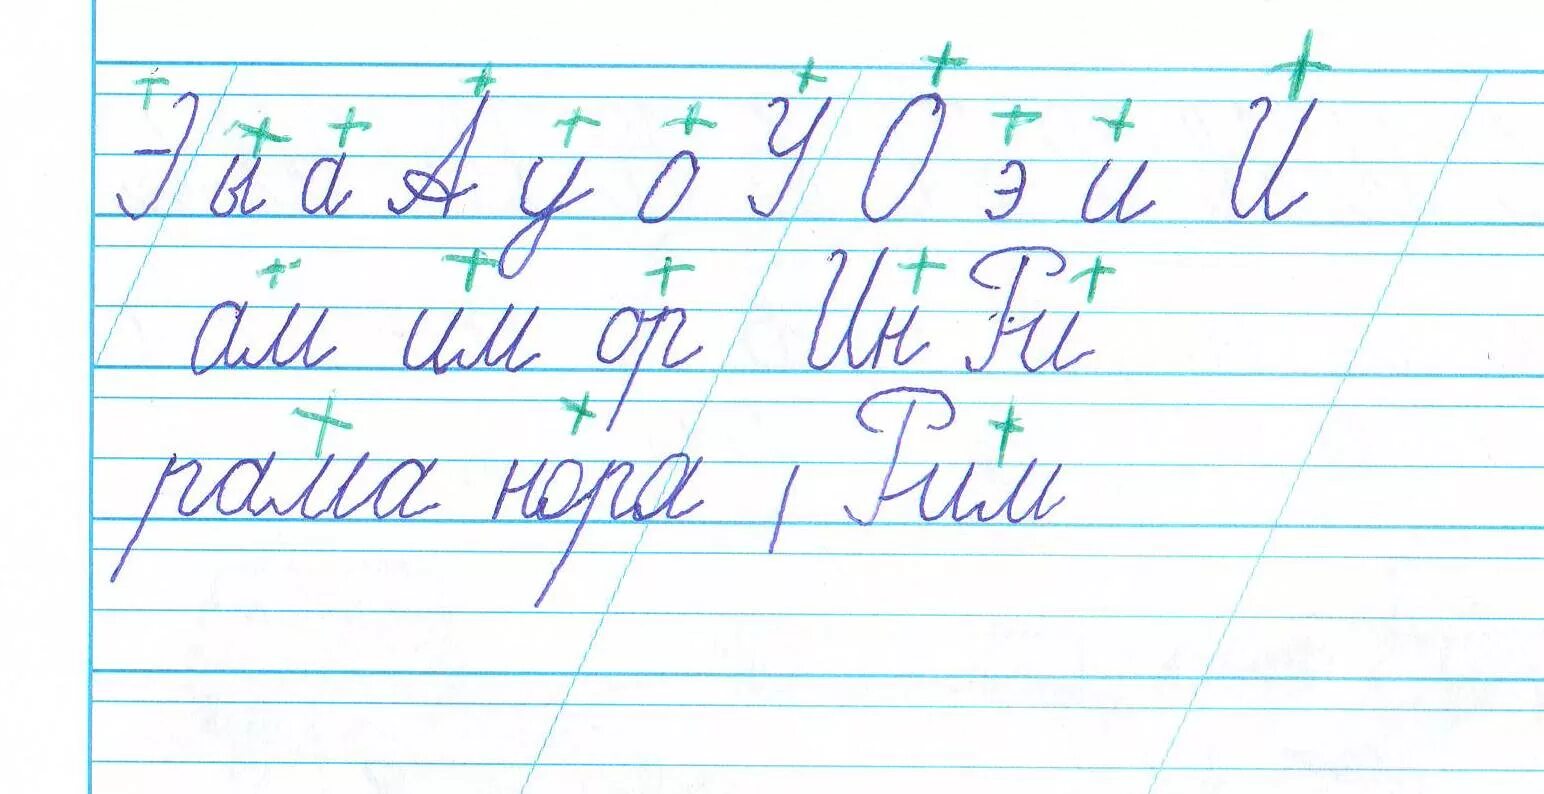 Э ы а А у о У О э и И
ам им ор Ин Ри
рама нора , Рим